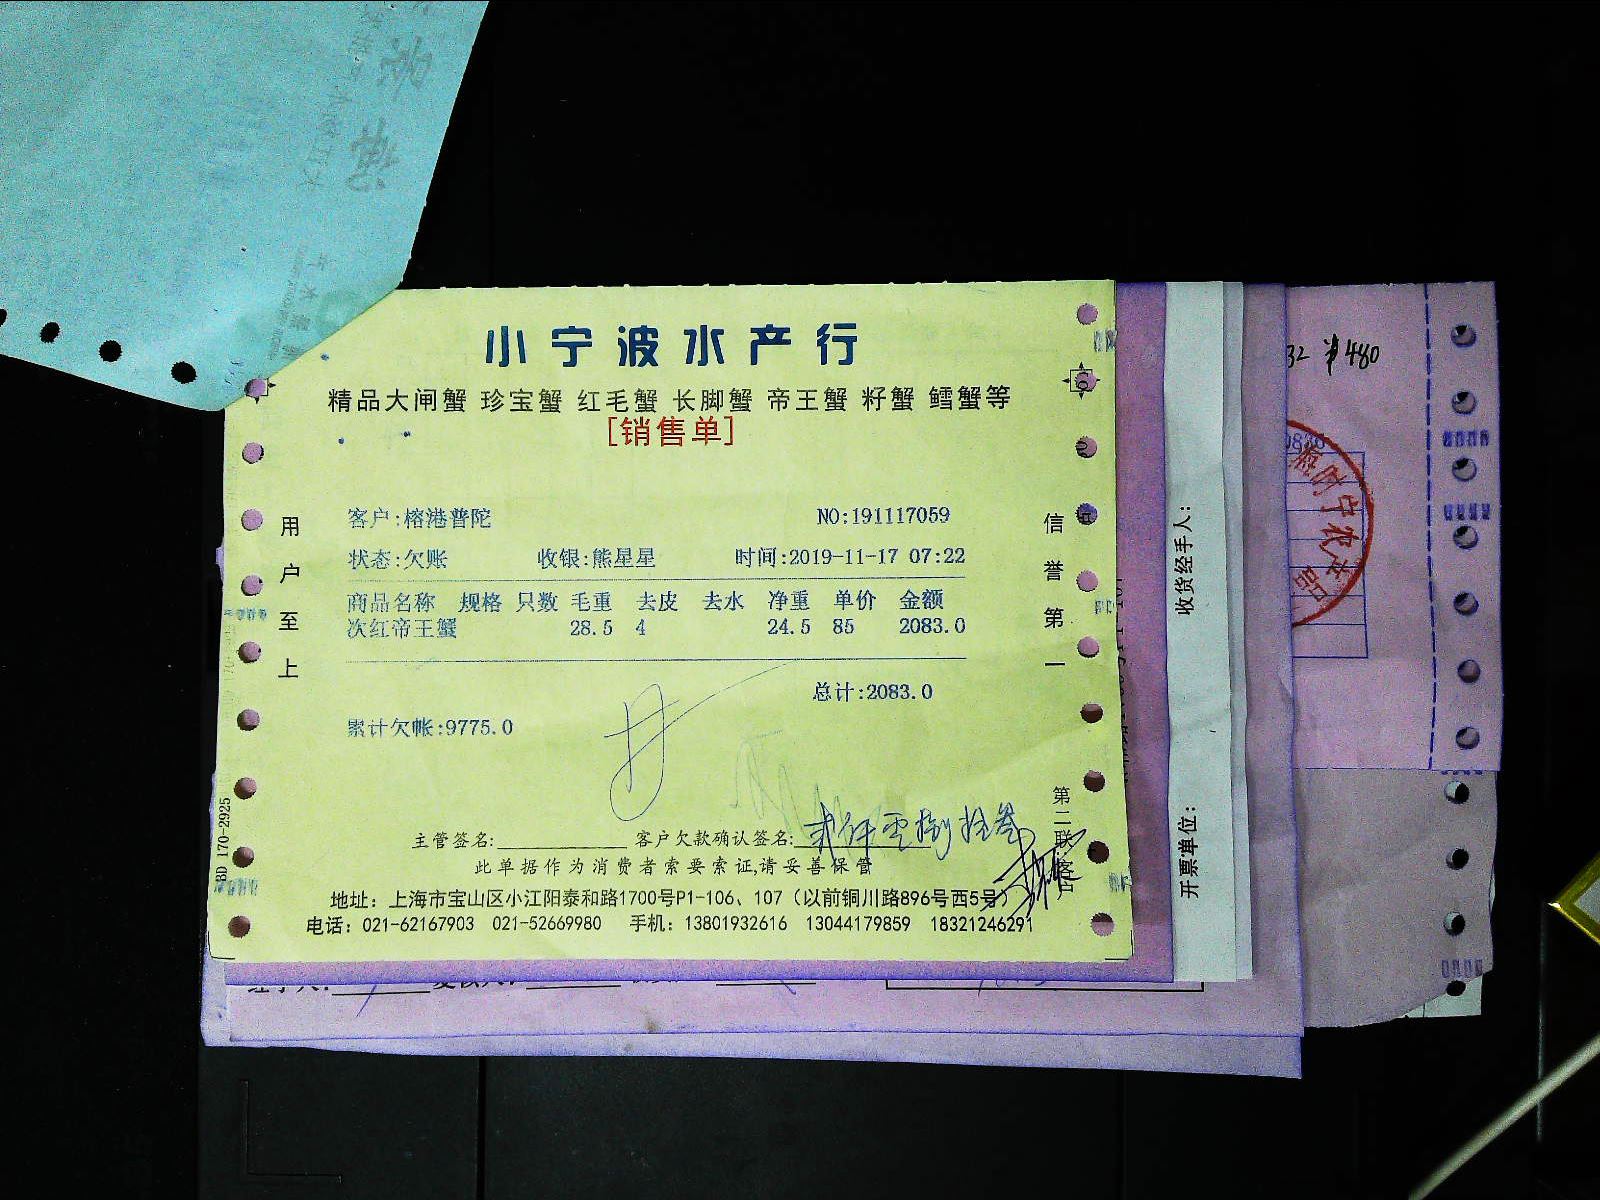 小宁波水产行
精品大闸蟹 珍宝蟹 红毛蟹 长脚蟹 帝王蟹 籽蟹 鳕蟹等
[销售单]
客户:榕港普陀 NO:191117059
状态:欠账 收银:熊星星 时间:2019-11-17 07:22
商品名称 规格 只数 毛重 去皮 去水 净重 单价 金额
次红帝王蟹 28.5 4 24.5 85 2083.0
总计:2083.0
累计欠帐:9775.0
主管签名: 客户欠款确认签名: 贰仟零捌拾叁
此单据作为消费者索要索证,请妥善保管
地址：上海市宝山区小江阳泰和路1700号P1-106、107（以前铜川路896号西5号）
电话：021-62167903 021-52669980 手机：13801932616 13044179859 18321246291
用户至上
信誉第一
第二联
BD 170-2925
收货经手人：
开票单位：
32 ¥480